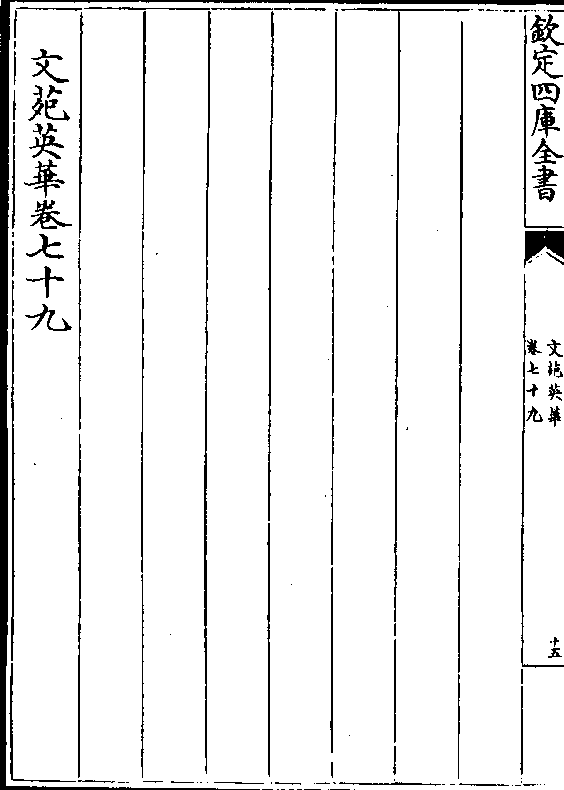 欽定四庫全書
文苑英華
卷七十九
十五
文苑英華卷七十九